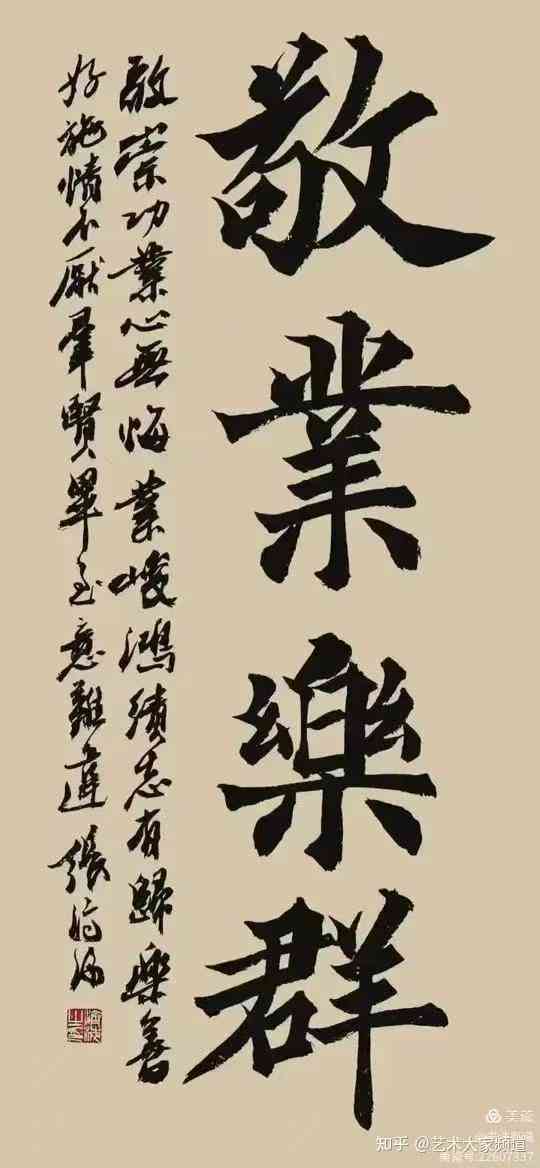 敬業樂群
敬崇功業心無悔業峻鴻績志有歸樂善
好施情不厭羣賢畢至意難違 張
美篇
知乎 @艺术大家频道
美篇号:22607337